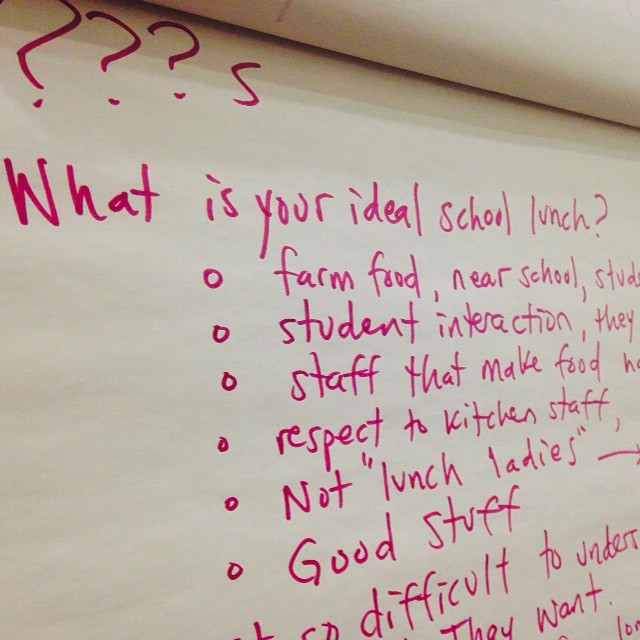 ???s
What is your ideal school lunch?
farm food, near school,
student interaction, they
staff that make food
respect to kitchen staff,
Not "lunch ladies" →
Good stuff
so difficult to
They want.